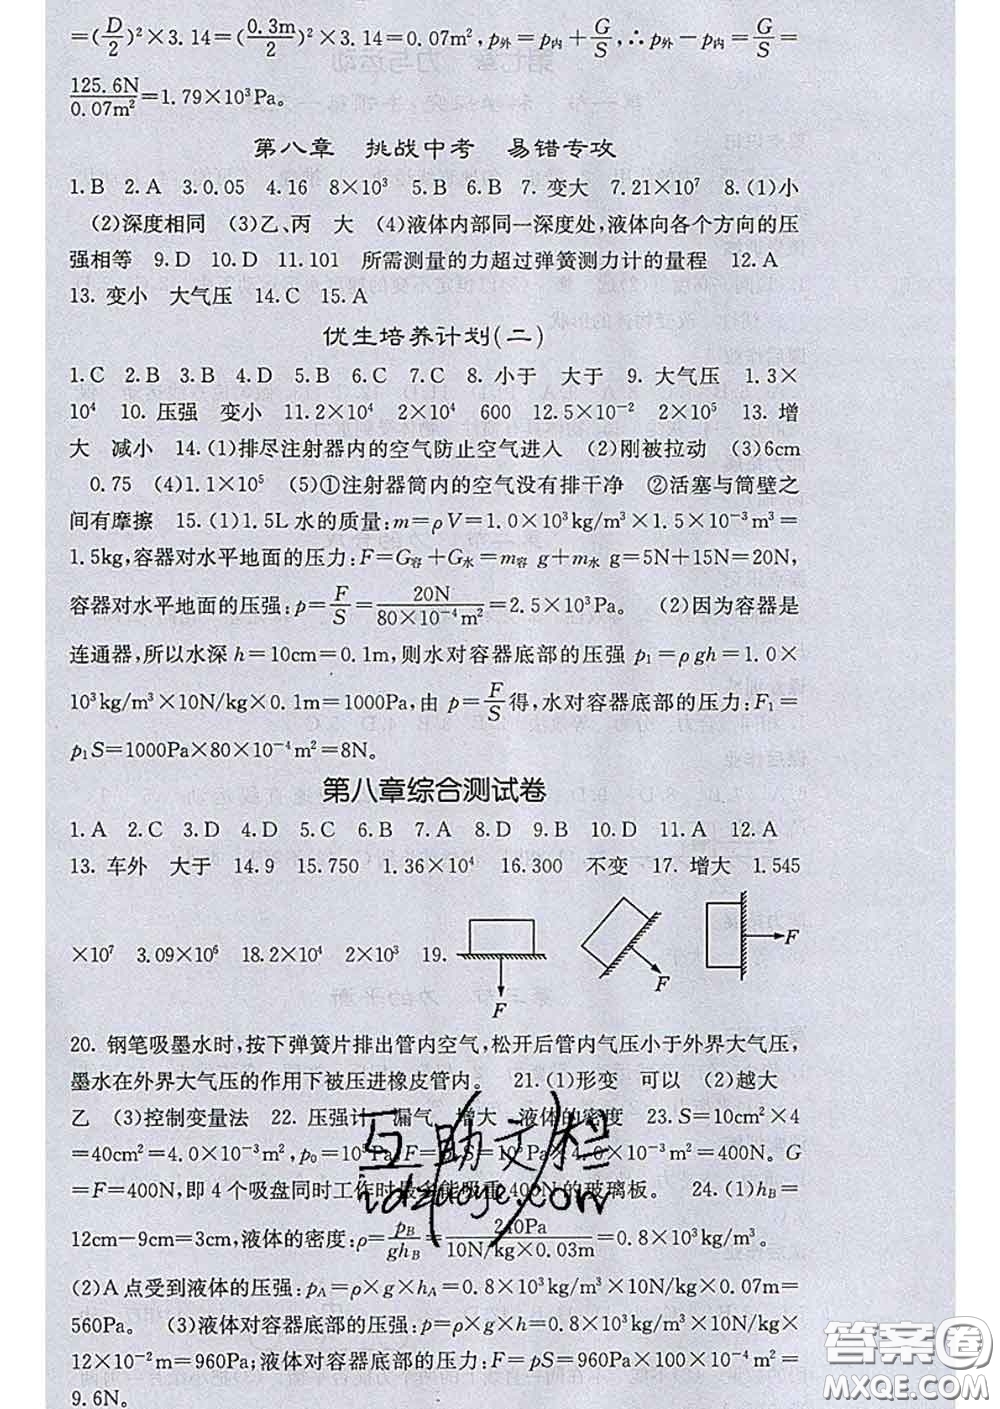 =(D/2)²×3.14=(0.3m/2)²×3.14=0.07m²,p外=p内+G/S,∴p外-p内=G/S=
125.6N/0.07m²=1.79×10³Pa。
第八章 挑战中考 易错专攻
1.B 2.A 3.0.05 4.16 8×10³ 5.B 6.B 7.变大 7.21×10⁷ 8.(1)小
(2)深度相同 (3)乙、丙 大 (4)液体内部同一深度处,液体向各个方向的压
强相等 9.D 10.D 11.101 所需测量的力超过弹簧测力计的量程 12.A
13.变小 大气压 14.C 15.A
优生培养计划(二)
1.C 2.B 3.B 4.D 5.B 6.C 7.C 8.小于 大于 9.大气压 1.3×
10⁴ 10.压强 变小 11.2×10⁴ 2×10⁴ 600 12.5×10⁻² 2×10⁵ 13.增
大 减小 14.(1)排尽注射器内的空气防止空气进入 (2)刚被拉动 (3)6cm
0.75 (4)1.1×10⁵ (5)①注射器筒内的空气没有排干净 ②活塞与筒壁之
间有摩擦 15.(1)1.5L水的质量:m=ρV=1.0×10³kg/m³×1.5×10⁻³m³=
1.5kg,容器对水平地面的压力:F=G容+G水=m容g+m水g=5N+15N=20N,
容器对水平地面的压强:p=F/S=20N/80×10⁻⁴m²=2.5×10³Pa。 (2)因为容器是
连通器,所以水深h=10cm=0.1m,则水对容器底部的压强p₁=ρgh=1.0×
10³kg/m³×10N/kg×0.1m=1000Pa,由p=F/S得,水对容器底部的压力:F₁=
p₁S=1000Pa×80×10⁻⁴m²=8N。
第八章综合测试卷
1.A 2.C 3.D 4.D 5.C 6.B 7.A 8.D 9.B 10.D 11.A 12.A
13.车外 大于 14.9 15.750 1.36×10⁴ 16.300 不变 17.增大 1.545
×10⁷ 3.09×10⁶ 18.2×10⁴ 2×10³ 19.
F F F
20.钢笔吸墨水时,按下弹簧片排出管内空气,松开后管内气压小于外界大气压,
墨水在外界大气压的作用下被压进橡皮管内。 21.(1)形变 可以 (2)越大
乙 (3)控制变量法 22.压强计 漏气 增大 液体的密度 23.S=10cm²×4
=40cm²=4.0×10⁻³m²,p₀=10⁵Pa,F=p₀S=10⁵Pa×4.0×10⁻³m²=400N。G
=F=400N,即4个吸盘同时工作时最多能吸重400N的玻璃板。 24.(1)h_B=
12cm-9cm=3cm,液体的密度:ρ=p_B/gh_B=240Pa/10N/kg×0.03m=0.8×10³kg/m³。
(2)A点受到液体的压强:p_A=ρ×g×h_A=0.8×10³kg/m³×10N/kg×0.07m=
560Pa。 (3)液体对容器底部的压强:p=ρ×g×h=0.8×10³kg/m³×10N/kg×
12×10⁻²m=960Pa;液体对容器底部的压力:F=pS=960Pa×100×10⁻⁴m²=
9.6N。
互助文档
答案圈
MXQE.COM